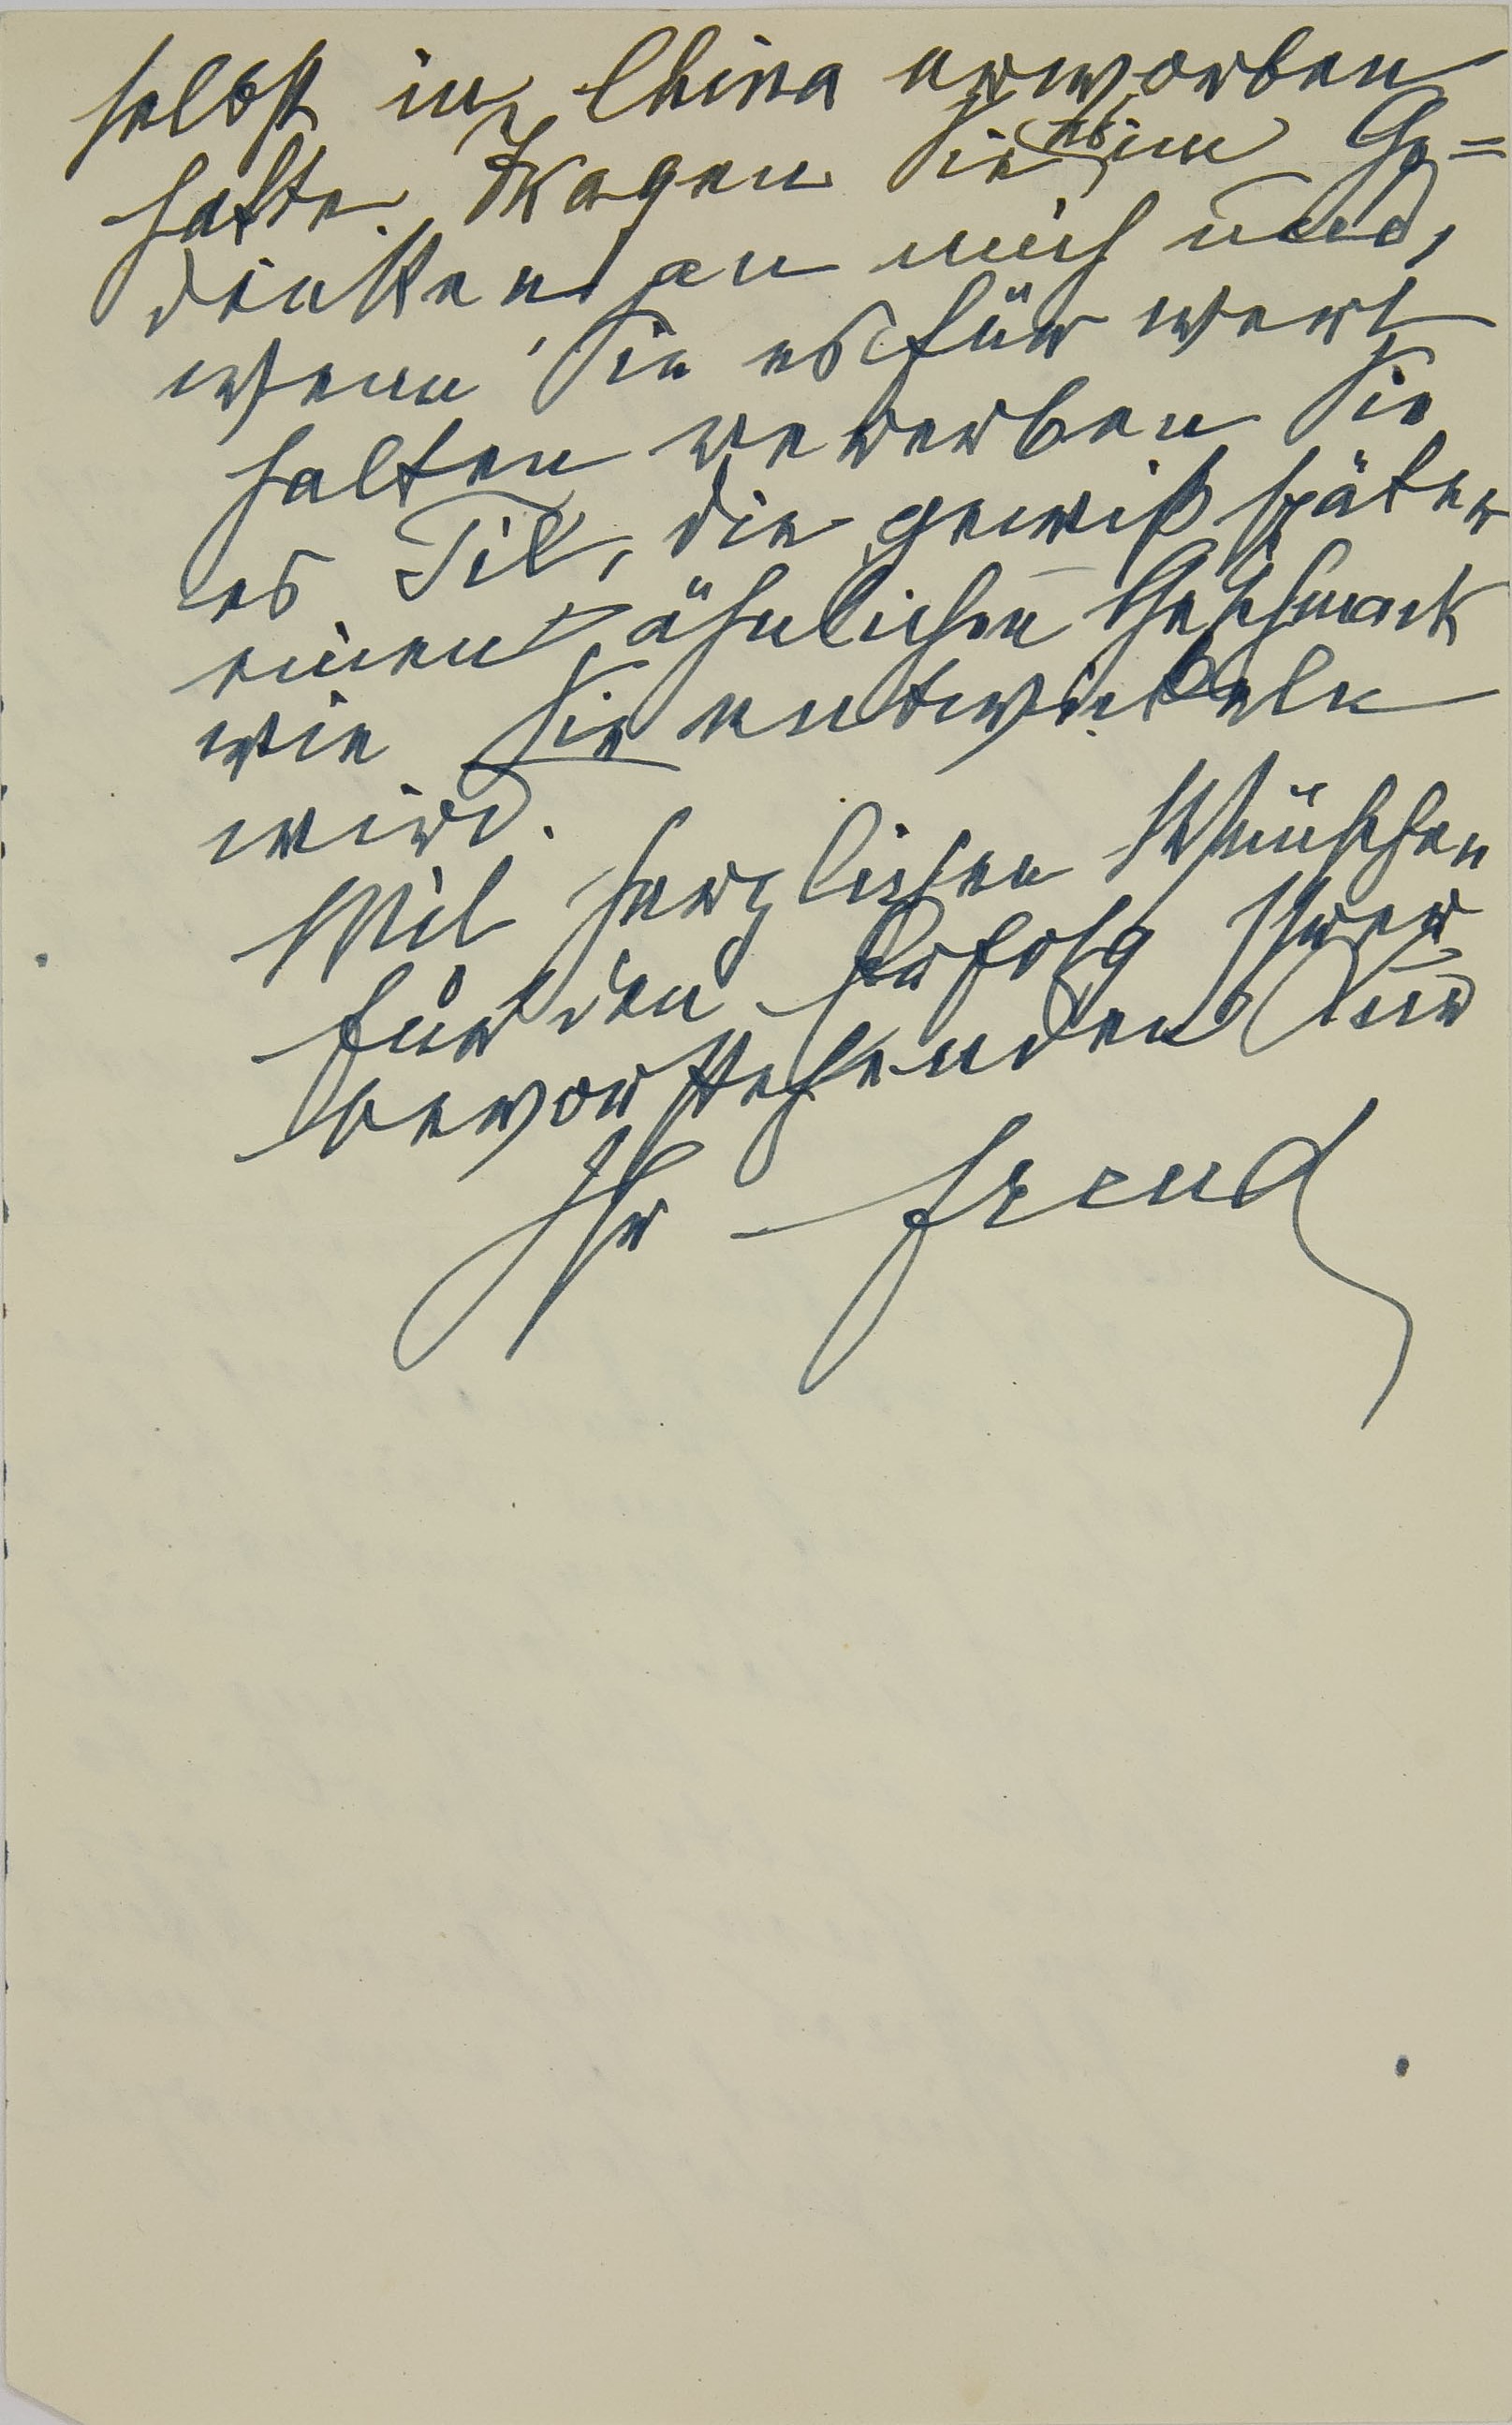 selbst in China erworben
hatte. Tragen Sie es im Ge=
denken an mich und,
wenn Sie es für wert
halten vererben Sie
es Til, die gewiß später
einen ähnlichen Geschmack
wie Sie entwickeln
wird.
Mit herzlichen Wünschen
für den Erfolg Ihrer
bevorstehenden Kur
Ihr Freud